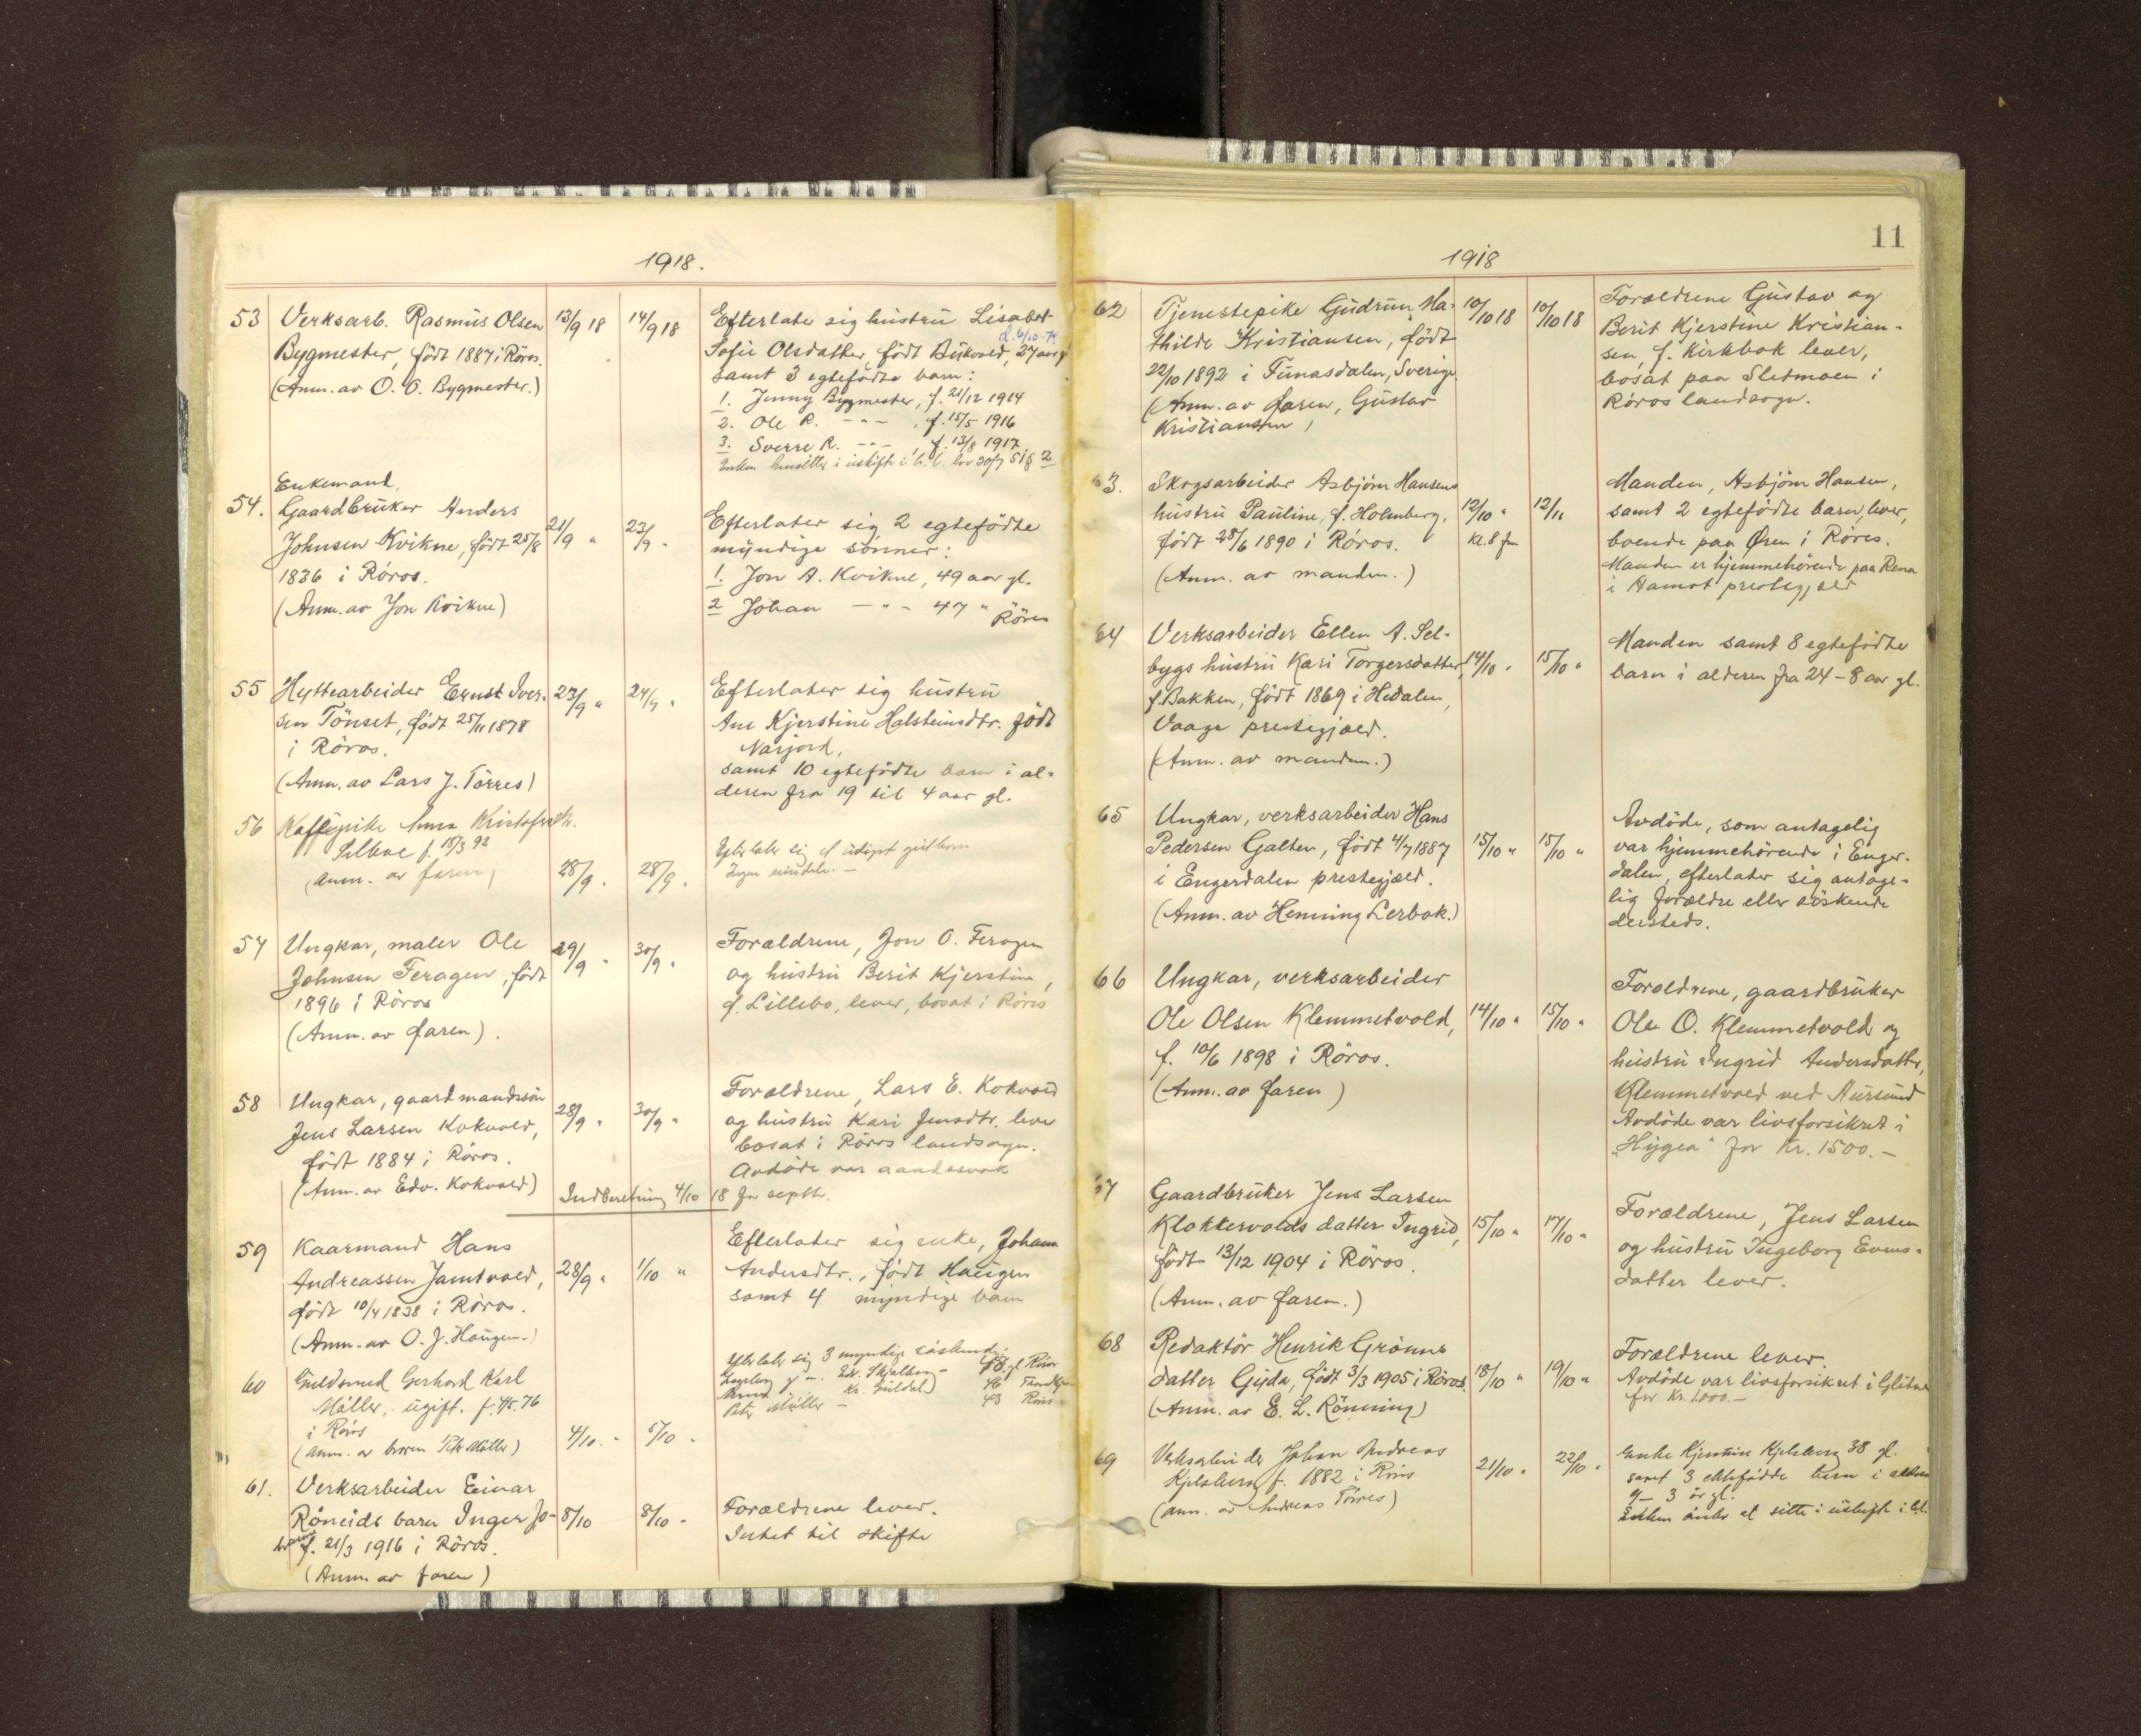 1918.
53 Verksarb. Rasmus Olsen 13/9 18 14/9 18 Efterlater sig hustru Lisabet
d. 6/10-74
Bygmester, født 1887 i Röros. Sofie Olsdatter, født Bukvold, 27 aar gl
(Anm. av O. O. Bygmester.) samt 3 egtefödte barn:
1. Jenny Bygmester, f. 21/12 1914
2. Ole R. -"- , f. 15/5 1916
3. Sverre R. -"- f. 13/8 1917
Enken hensitter i uskifte i h. t. lov 30/7 51 § 2
Enkemand,
54. Gaardbruker Anders 21/9 " 23/9 " Efterlater sig 2 egtefödte
Johnsen Kvikne, født 25/8 myndige sönner:
1836 i Röros. 1. Jon A. Kvikne, 49 aar gl.
(Anm. av Jon Kvikne) 2 Johan -"- 47 " Röros
55 Hyttearbeider Ernst Iver- 23/9 " 24/9 " Efterlater sig hustru
sen Tönset, født 25/11 1878 Ane Kjerstine Halsteinsdtr. født
i Röros. Narjord,
(Anm. av Lars J. Törres) samt 10 egtefödte barn i al-
deren fra 19 til 4 aar gl.
56 Kaffepike Anna Kristofersdtr.
Selboe f. 18/3 92 28/9. 28/9. Efterlater sig et udöpt pikebarn
(anm. av faren)
57 Ungkar, maler Ole 29/9 " 30/9 " Forældrene, Jon O. Feragen
Johnsen Feragen, født og hustru Berit Kjerstine,
1896 i Röros f. Lillebo, lever, bosat i Röros
(Anm. av faren).
58 Ungkar, gaardmandssön 28/9 " 30/9 " Forældrene, Lars E. Kokvold
Jens Larsen Kokvold, og hustru Kari Jensdtr. leve
født 1884 i Röros. bosat i Röros landsogn.
(Anm. av Edv. Kokvold) Avdöde var aandssvak
Indberetning 4/10 18 for septbr.
59 Kaarmand Hans 28/9 " 1/10 " Efterlater sig enke, Johann
Andreassen Jamtvold, Andersdtr., født Haugen
født 10/4 1838 i Röros. samt 4 myndige barn
(Anm. av O. J. Haugen.)
60 Guldsmed Gerhard Karl 4/10. " 5/10 " Efterlater sig 3 myndige söskende:
Müller, ugift. f. 4/5. 76 Ingeborg g. m. Edv. Skjølberg - 48 gl. Röros
i Röros Kr. Guldal) 46
(anm. av broren Petr Müller) Petr Müller - 43 Röros
61. Verksarbeider Einar 8/10 8/10 " Forældrene lever.
Röneids barn Inger Jo- Intet til skifte
hanne f. 21/3 1916 i Röros.
(Anm. av faren)
11
1918
62 Tjenestepike Gudrun Ma- 10/10 18 10/10 18 Forældrene Gustav og
thilde Kristiansen, født Berit Kjerstine Kristian-
22/10 1892 i Funasdalen, Sverige. sen, f. Kirkbak lever,
(Anm. av faren, Gustav bosat paa Sletmoen i
Kristiansen) Röros landsogn.
63. Skogsarbeider Asbjörn Hansens 12/10 " kl. 8 fm 12/11 Manden, Asbjörn Hansen,
hustru Pauline, f. Holmberg, samt 2 egtefödte barn, lever,
født 28/6 1890 i Röros. boende paa Øren i Röros.
(Anm. av manden.) Manden er hjemmehörende paa Rena
i Aamot prestegjæld
64 Verksarbeider Ellen A. Sel- 14/10 " 15/10 " Manden samt 8 egtefödte
bygs hustru Kari Torgersdatter, barn i alderen fra 24-8 aar gl.
f. Bakken, født 1869 i Hedalen,
Vaage prestegjæld.
(Anm. av manden.)
65 Ungkar, verksarbeider Hans 15/10 " 15/10 " Avdöde, som antagelig
Pedersen Galten, født 4/7 1887 var hjemmehörende i Enger-
i Engerdalen prestegjæld. dalen, efterlater sig antage-
(Anm. av Henning Lerbak.) lig forældre eller söskende
dersteds.
66 Ungkar, verksarbeider 14/10 " 15/10 " Forældrene, gaardbruker
Ole Olsen Klemmetvold, Ole O. Klemmetvold og
f. 10/6 1898 i Röros. hustru Ingrid Andersdatter,
(Anm. av faren) Klemmetvold ved Aursund
Avdöde var livsforsikret i
"Hygea" for Kr. 1500.-
67 Gaardbruker Jens Larsen 15/10 " 17/10 " Forældrene, Jens Larsen
Klokkervolds datter Ingrid, og hustru Ingeborg Evens-
født 13/12 1904 i Röros. datter lever.
(Anm. av faren.)
68 Redaktör Henrik Grönns 18/10 " 19/10 " Forældrene lever.
datter Gyda, født 3/3 1905 i Röros. Avdöde var livsforsikret i Glitne
(Anm. av E. L. Rönning) for Kr. 1000.-
69 Verksarbeider Johan Andreas 21/10 " 22/10 " Enke Kjerstine Kjelsberg 38 gl.
Kjelsberg f. 1882 i Röros samt 3 ektefødde barn i alderen
(anm. av Andreas Törres) 9 - 3 år gl.
Enken ønsker at sitte i uskifte i h.t.